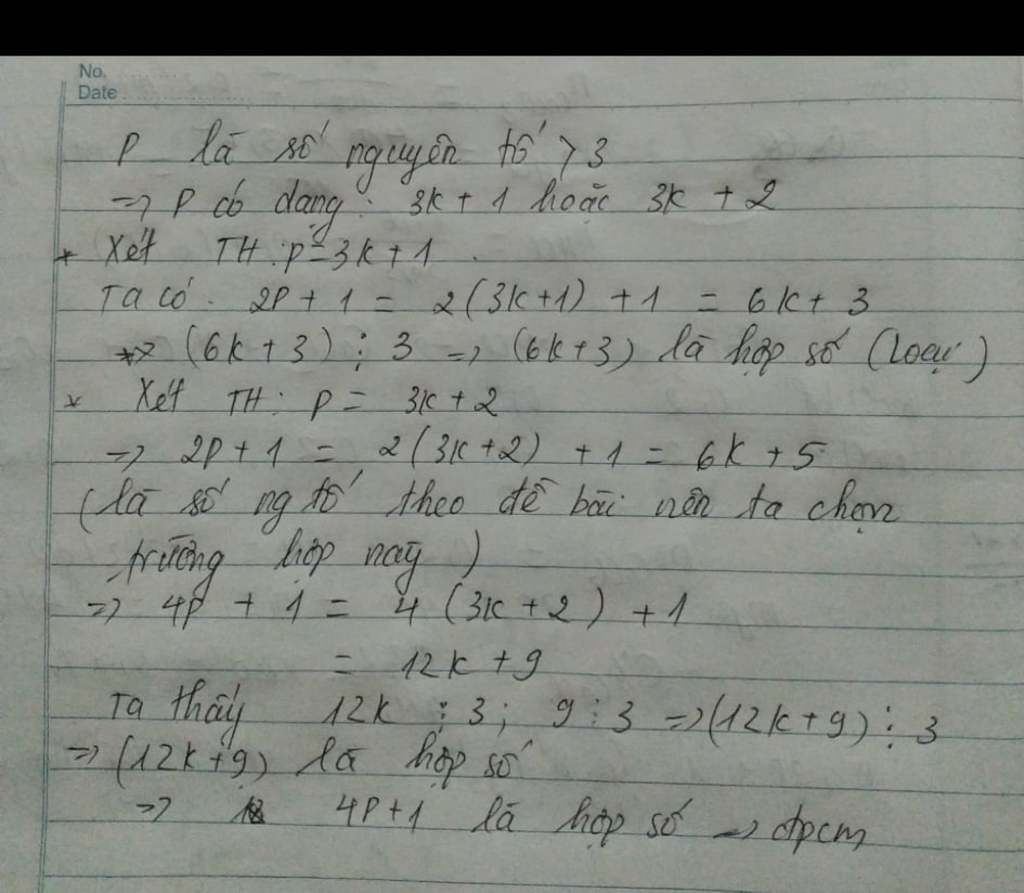 No.
Date
P là số nguyên tố > 3
=> P có dạng: 3k + 1 hoặc 3k + 2
* Xét TH: p = 3k + 1.
Ta có. 2P + 1 = 2(3k+1) + 1 = 6k + 3
(6k + 3) ⋮ 3 => (6k+3) là hợp số (Loại)
* Xét TH: P = 3k + 2
=> 2P + 1 = 2(3k+2) + 1 = 6k + 5
(là số ng tố theo đề bài nên ta chọn
trường hợp này)
=> 4P + 1 = 4(3k + 2) + 1
= 12k + 9
Ta thấy 12k ⋮ 3; 9 ⋮ 3 => (12k + 9) ⋮ 3
=> (12k+9) là hợp số
=> 4P+1 là hợp số -> đpcm